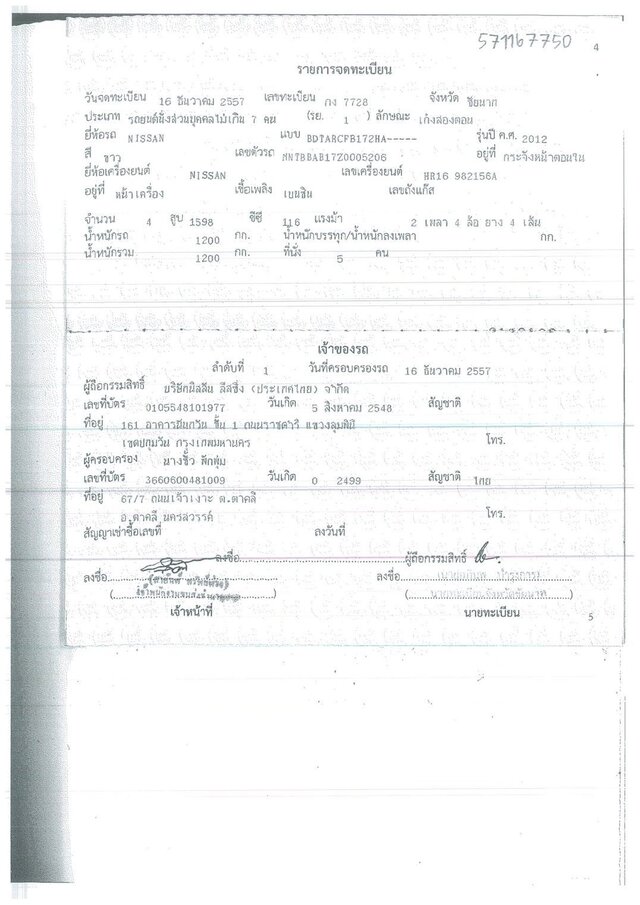 571167750
4
รายการจดทะเบียน
วันจดทะเบียน 16 ธันวาคม 2557 เลขทะเบียน กง 7728 จังหวัด ชัยนาท
ประเภท รถยนต์นั่งส่วนบุคคลไม่เกิน 7 คน (รย. 1 ) ลักษณะ เก๋งสองตอน
ยี่ห้อรถ NISSAN แบบ BDTARCFB172HA----- รุ่นปี ค.ศ. 2012
สี ขาว เลขตัวรถ MNTBBAB17Z0005206 อยู่ที่ กระจังหน้าตอนใน
ยี่ห้อเครื่องยนต์ NISSAN เลขเครื่องยนต์ HR16 982156A
อยู่ที่ หน้าเครื่อง เชื้อเพลิง เบนซิน เลขถังแก๊ส
จำนวน 4 สูบ 1598 ซีซี 116 แรงม้า 2 เพลา 4 ล้อ ยาง 4 เส้น
น้ำหนักรถ 1200 กก. น้ำหนักบรรทุก/น้ำหนักลงเพลา กก.
น้ำหนักรวม 1200 กก. ที่นั่ง 5 คน
เจ้าของรถ
ลำดับที่ 1 วันที่ครอบครองรถ 16 ธันวาคม 2557
ผู้ถือกรรมสิทธิ์ บริษัทนิสสัน ลีสซิ่ง (ประเทศไทย) จำกัด
เลขที่บัตร 0105548101977 วันเกิด 5 สิงหาคม 2548 สัญชาติ
ที่อยู่ 161 อาคารนันทวัน ชั้น 1 ถนนราชดำริ แขวงลุมพินี
เขตปทุมวัน กรุงเทพมหานคร โทร.
ผู้ครอบครอง
เลขที่บัตร 3660600481009 วันเกิด 0 2499 สัญชาติ ไทย
ที่อยู่ 67/7 ถนนเจ้าเงาะ ต.ตาคลี
อ.ตาคลี นครสวรรค์ โทร.
สัญญาเช่าซื้อเลขที่ ลงวันที่
ลงชื่อ ผู้ถือกรรมสิทธิ์
ลงชื่อ ลงชื่อ
เจ้าหน้าที่ นายทะเบียน
5